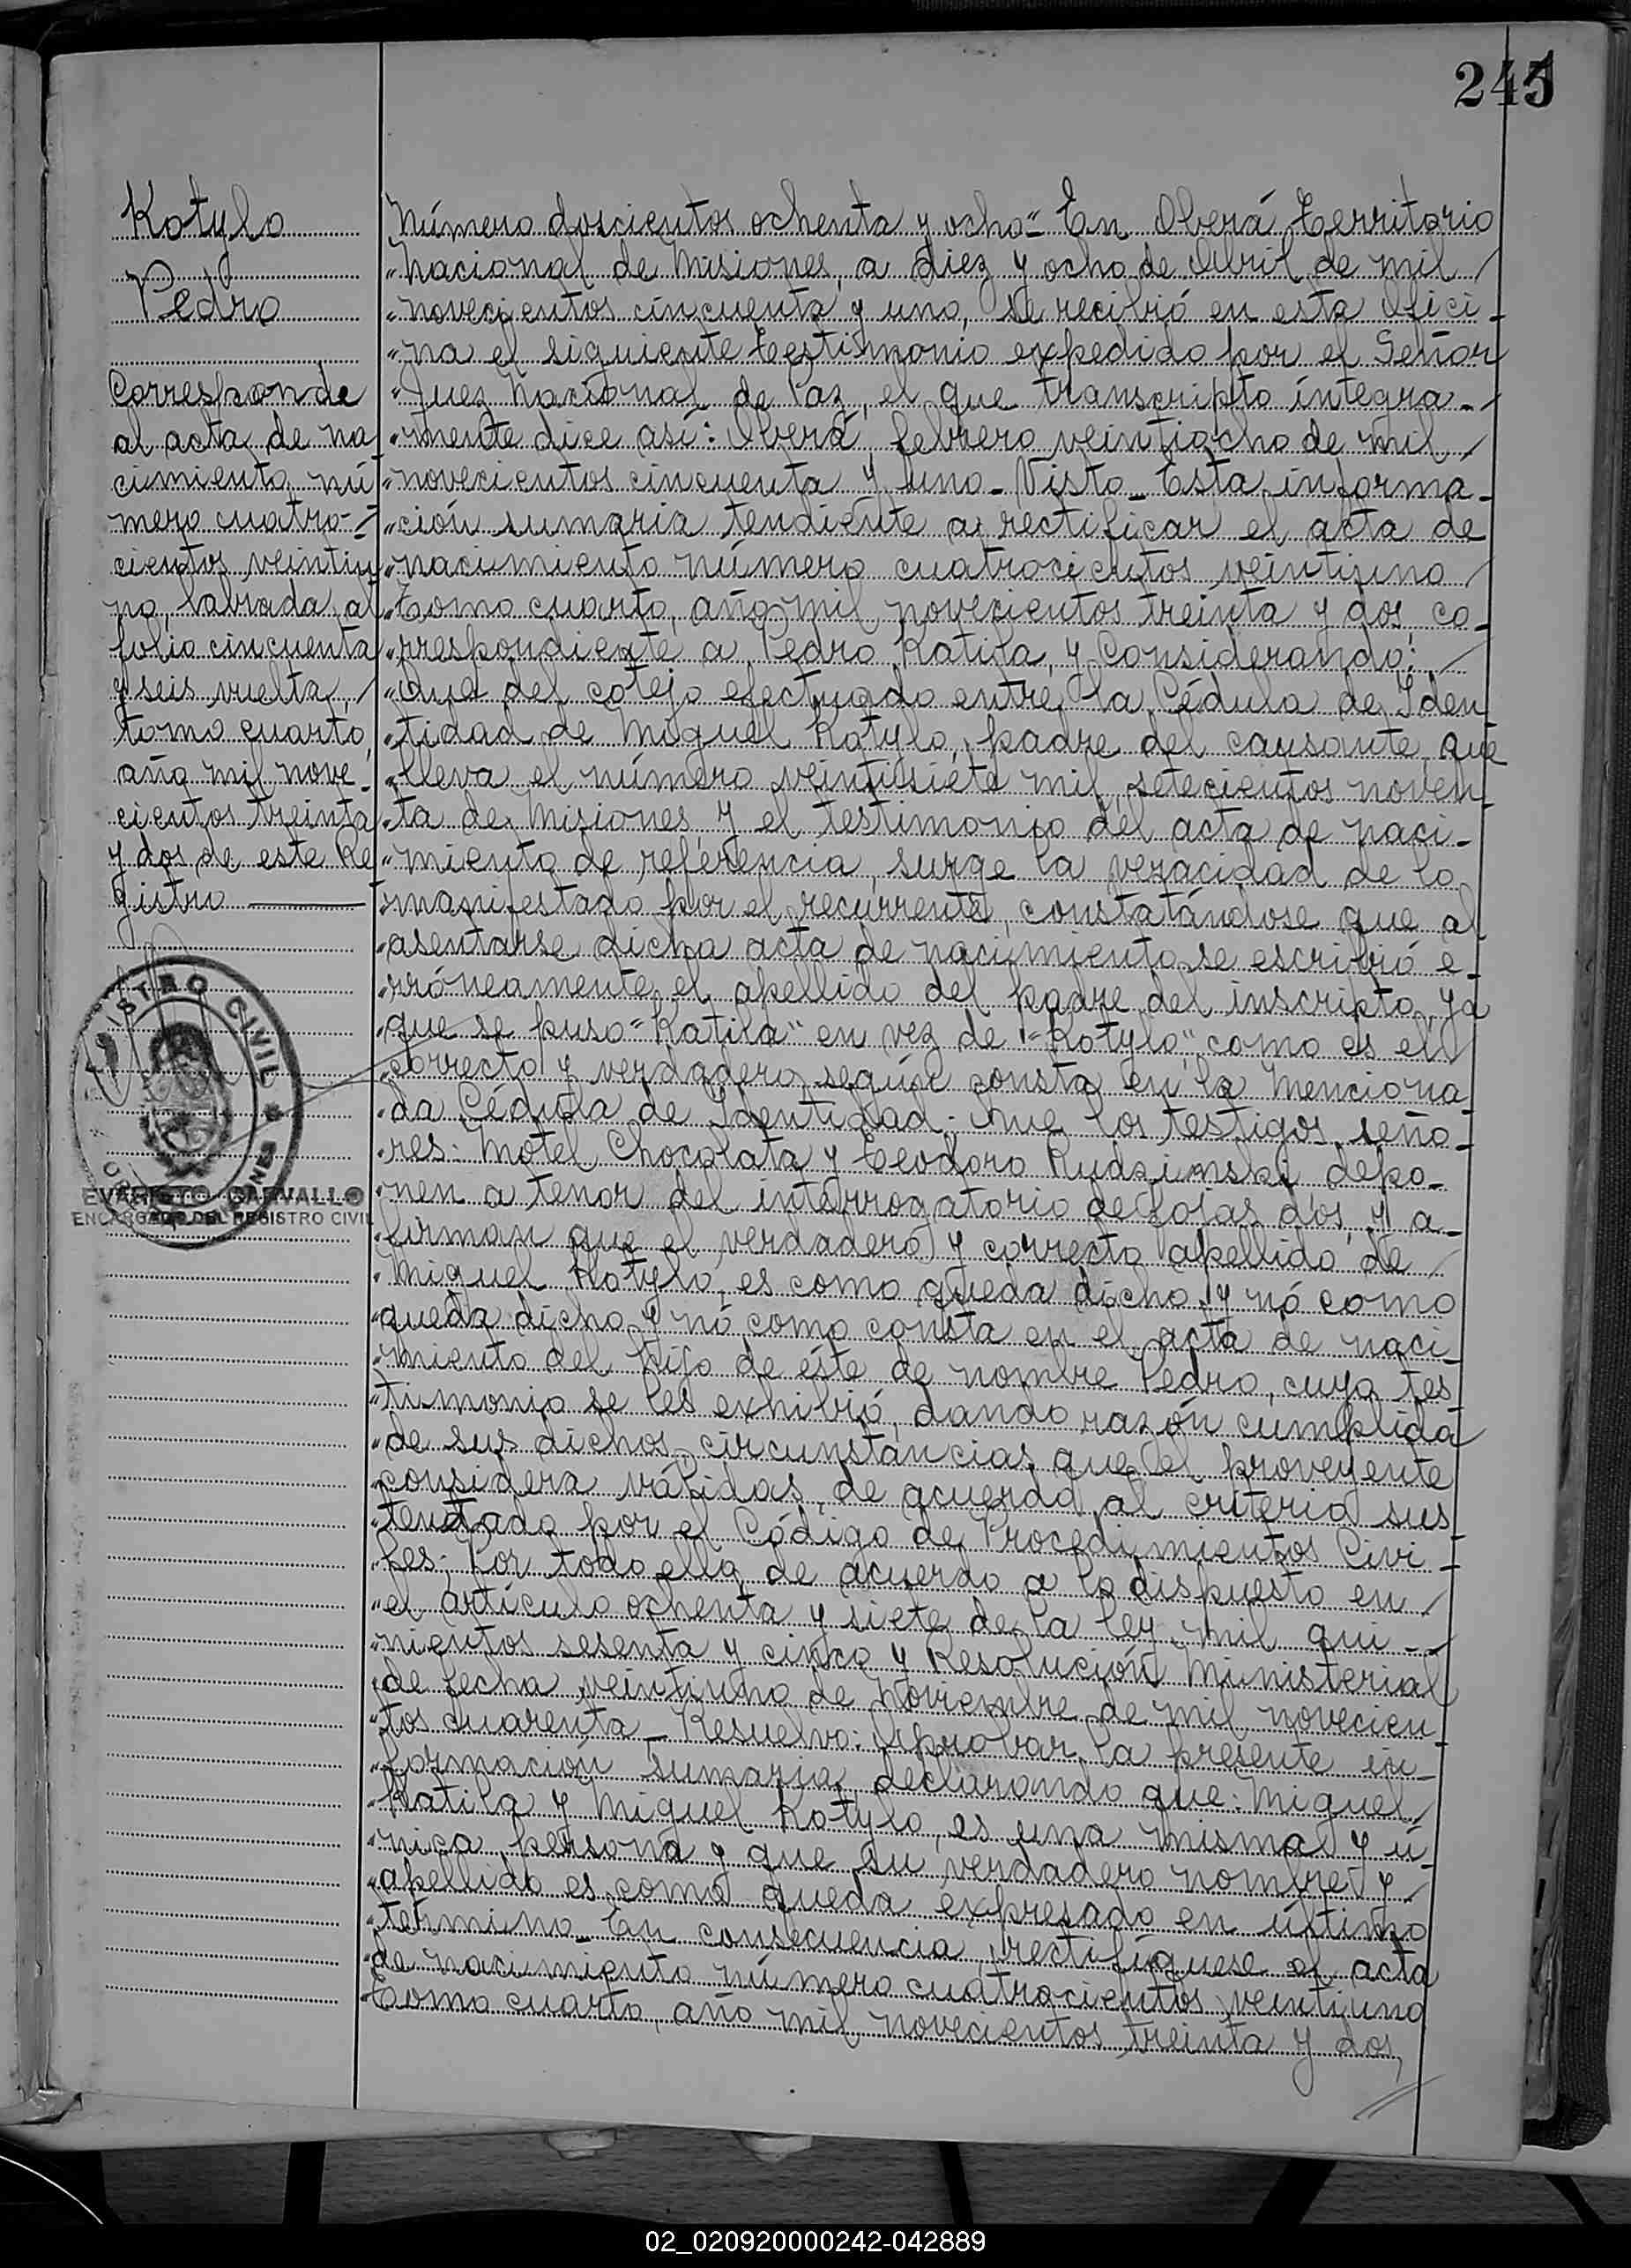 245
Kotylo
Pedro
Corresponde
al acta de na
cimiento nú-
mero cuatro-
cientos veintiu
no, labrada al
folio cincuenta
y seis vuelta, /
tomo cuarto,
año mil nove-
cientos treinta
y dos de este Re
gistro
REGISTRO CIVIL
EVARISTO CARVALLO
ENCARGADO DEL REGISTRO CIVIL
Número doscientos ochenta y ocho" En Oberá Territorio
"Nacional de Misiones, a diez y ocho de Abril de mil /
"novecientos cincuenta y uno, se recibió en esta Ofici-
"na el siguiente Testimonio expedido por el Señor
"Juez Nacional de Paz, el que transcripto íntegra-
"mente dice así: Oberá, febrero veintiocho de mil /
"novecientos cincuenta y uno- Visto- Esta informa-
"ción sumaria tendiente a rectificar el acta de
"nacimiento número cuatrocientos veintiuno /
"Tomo cuarto, año mil novecientos treinta y dos co-
"rrespondiente a Pedro Katila, y Considerando: /
"Que del cotejo efectuado entre la Cédula de Iden-
"tidad de Miguel Kotylo, padre del causante, que
"lleva el número veintisiete mil setecientos noven-
"ta de Misiones y el testimonio del acta de naci-
"miento de referencia, surge la veracidad de lo
"manifestado por el recurrente, constatándose que al
"asentarse dicha acta de nacimiento se escribió e-
"rróneamente el apellido del padre del inscripto, ya
"que se puso "Katila" en vez de "Kotylo" como es el /
"correcto y verdadero según consta en la menciona
"da Cédula de Identidad. Que los testigos seño-
"res: Motel Chocolata y Teodoro Rudzinski depo-
"nen a tenor del interrogatorio de fojas dos, y a-
"firman que el verdadero y correcto apellido de /
"Miguel Kotylo, es como queda dicho y nó como
"queda dicho y nó como consta en el acta de naci-
"miento del hijo de éste de nombre Pedro, cuyo tes
"timonio se les exhibió, dando razón cumplida
"de sus dichos, circunstancias que el proveyente
"considera válidas, de acuerdo al criterio sus-
"tentado por el Código de Procedimientos Civi-
"les; Por todo ello, de acuerdo a lo dispuesto en /
"el artículo ochenta y siete de la ley mil qui-
"nientos sesenta y cinco y Resolución Ministerial
"de fecha veintiuno de Noviembre de mil novecien
"tos cuarenta- Resuelvo: Aprobar la presente in-
"formación sumaria declarando que: Miguel /
"Katila y Miguel Kotylo, es una misma y ú-
"nica persona y que su verdadero nombre y /
"apellido es como queda expresado en último
"término- En consecuencia, rectifíquese el acta
"de nacimiento número cuatrocientos veintiuno
Tomo cuarto, año mil novecientos treinta y dos,
02_020920000242-042889